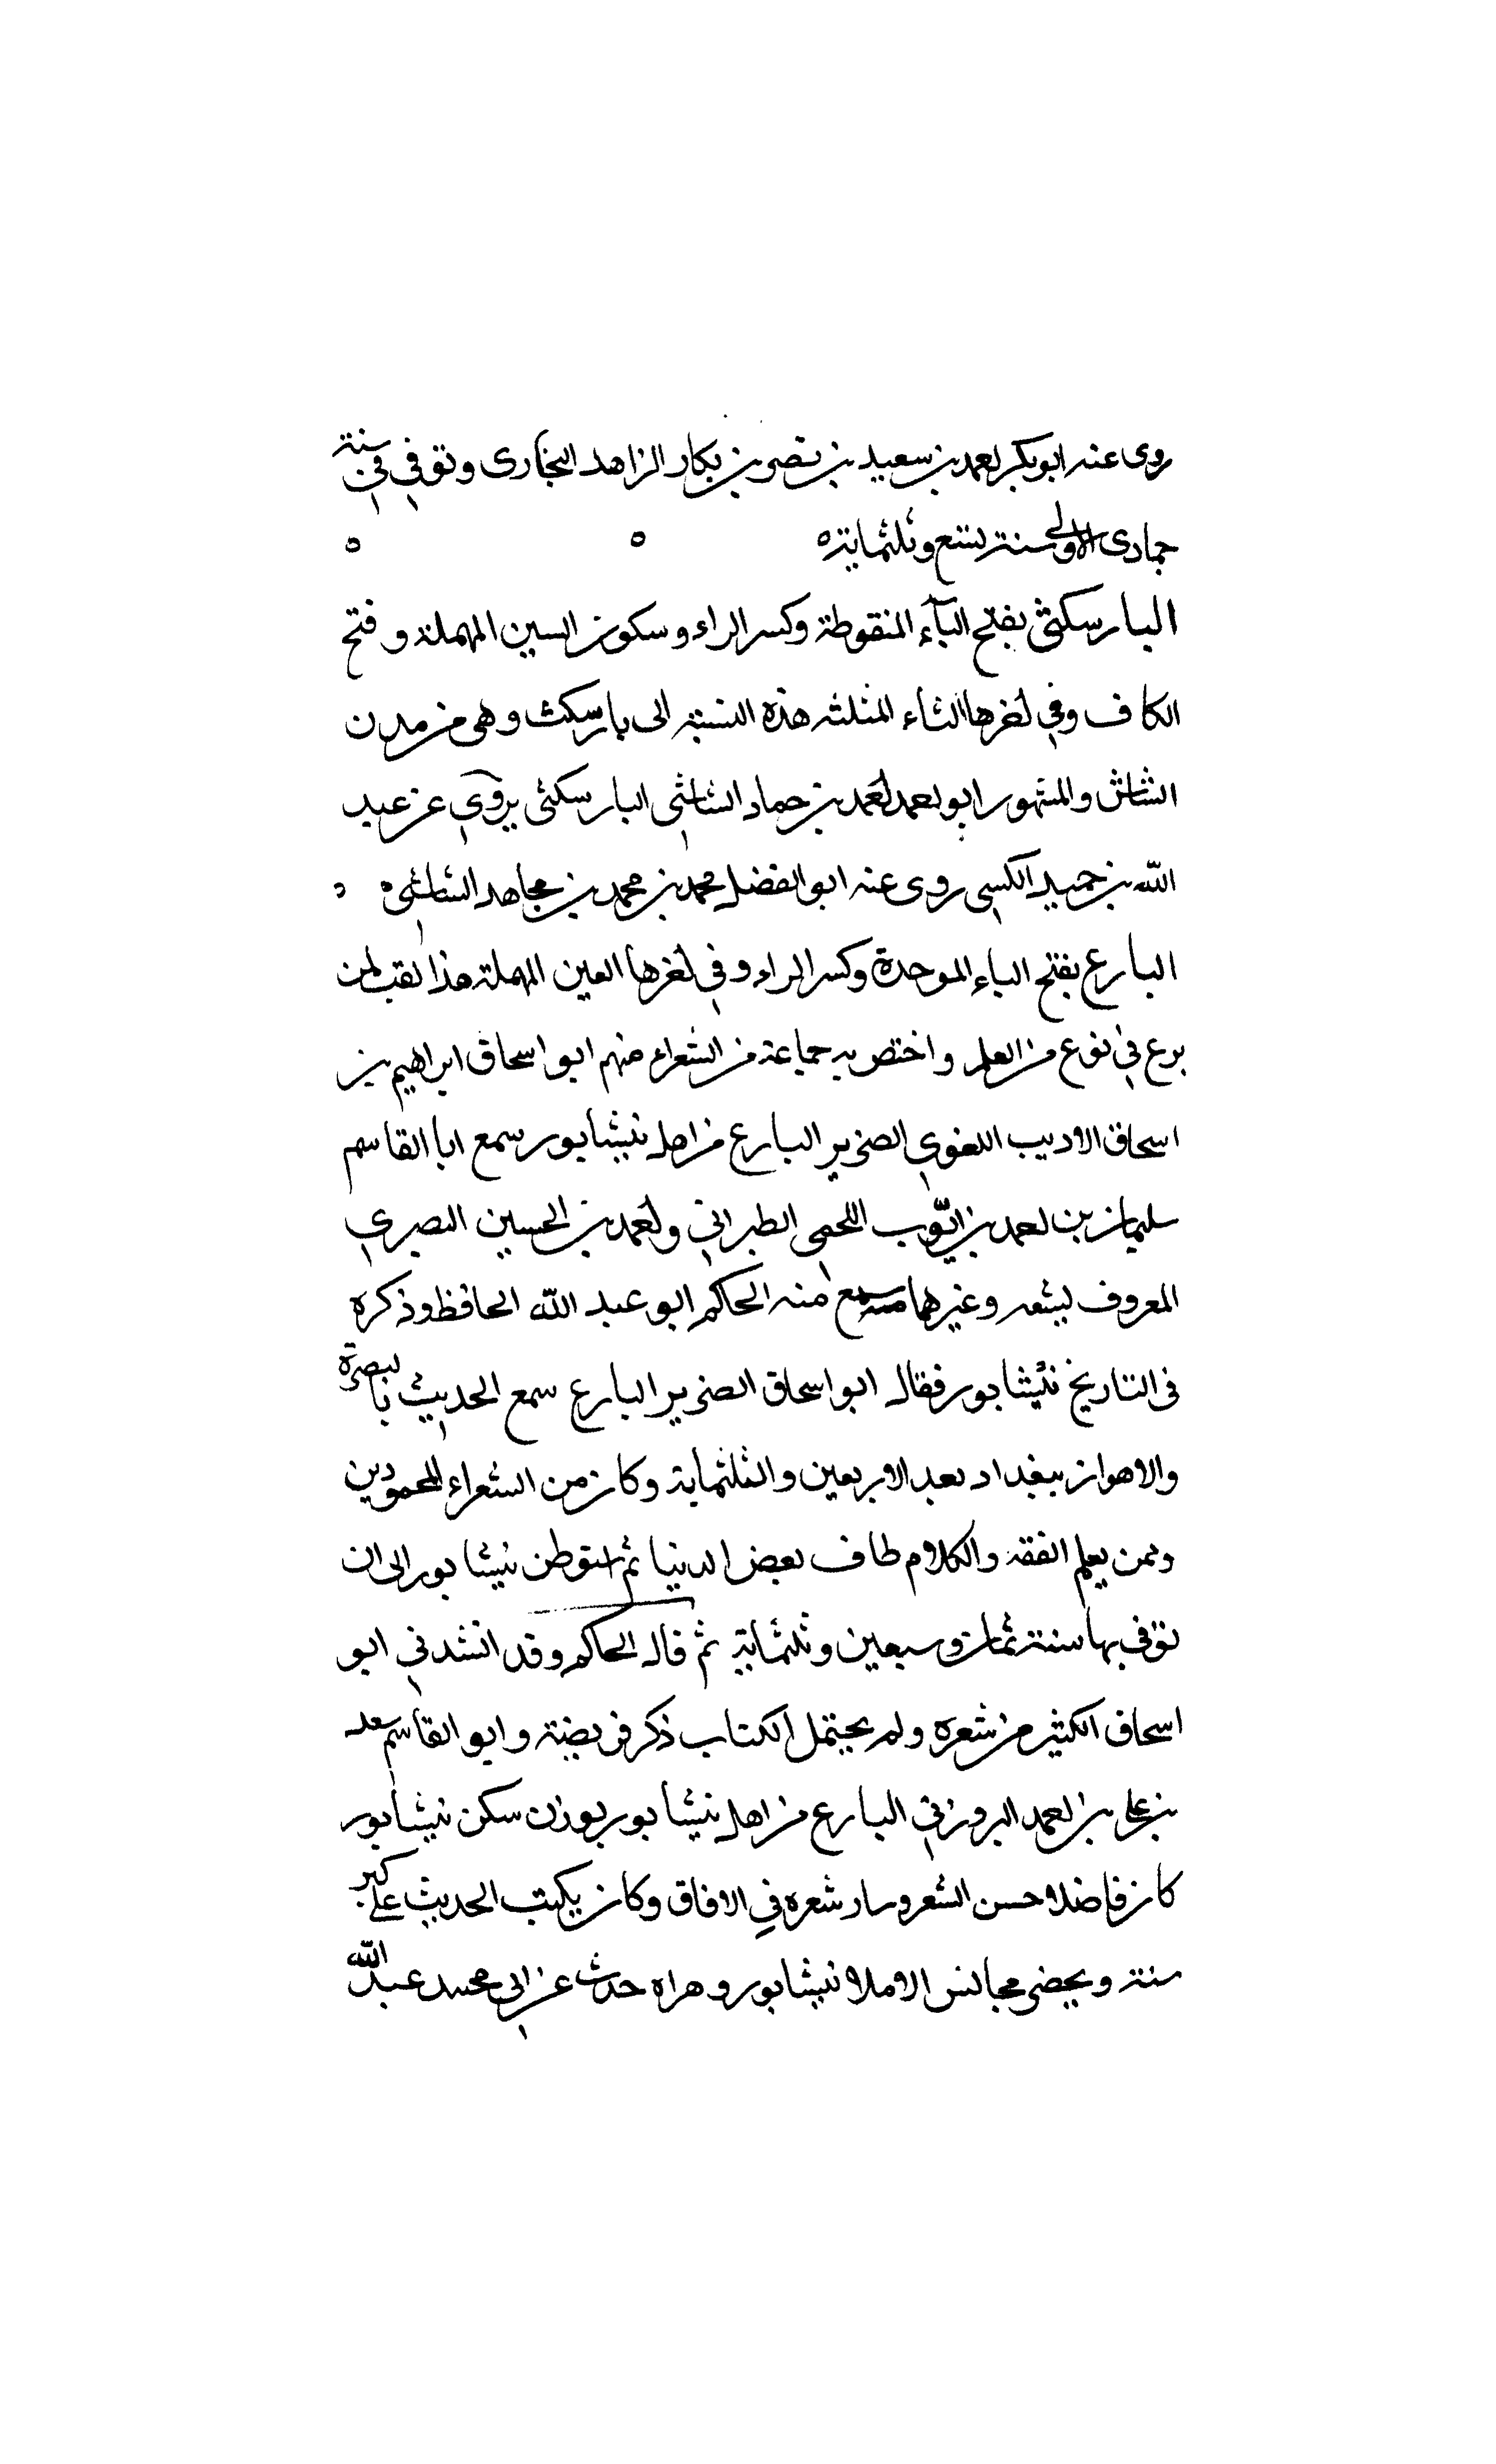 روى عنه ابو بكر احمد بن سعيد بن نصر بن بكار الزاهد البخارى وتوفي في سنة
جمادى الاولى سنة تسع وثلثماية ه ه ه
البارسكثى بفتح الباء المنقوطة وكسر الراء وسكون السين المهملة وفتح
الكاف وفي اخرها الثاء المثلثه هذه النسبة الى بارسكث وهى من مدن
الشاش والمشهور ابو احمد احمد بن حماد الشاشي البارسكثى يروي عن عبد
الله بن حميد الكسي روى عنه ابو الفضل محمد بن محمد بن مجاهد الشاشي ه ه
البارع بفتح الباء الموحدة وكسر الراء وفي اخرها العين المهملة هذا لقب لمن
برع في نوع من العلم واختص به جماعة من الشعراء منهم ابو اسحاق ابراهيم بن
اسحاق الاديب اللغوي الضرير البارع من اهل نيشابور سمع ابا القاسم
سليمان بن احمد بن ايّوب اللخمي الطبراني واحمد بن الحسين البصري
المعروف بشعبه وغيرهما سمع منه الحاكم ابو عبد الله الحافظ وذكره
فى التاريخ نيشابور فقال ابو اسحاق الضرير البارع سمع الحديث بالبصرة
والاهواز ببغداد بعد الاربعين والثلثماية وكان من الشعراء المحمودين
وممن يعلم الفقه والكلام طاف بعض الدنيا ثم استوطن نيشابور الى ان
توفى بها سنة ثمان وسبعين وثلثماية ثم قال الحاكم وقد انشدني ابو
اسحاق الكثير من شعره ولم يحتمل الكتاب ذكر وابو القاسم سعد
بن على بن احمد البروزني البارع من اهل نيشابور بوزن سكن نيشابور
كان فاضلا حسن الشعر وسار شعره في الافاق وكان يكتب الحديث على كبر
سنه ويحضر مجالس الاملا نيشابور وهراه حدث عن ابي محمد عبد الله